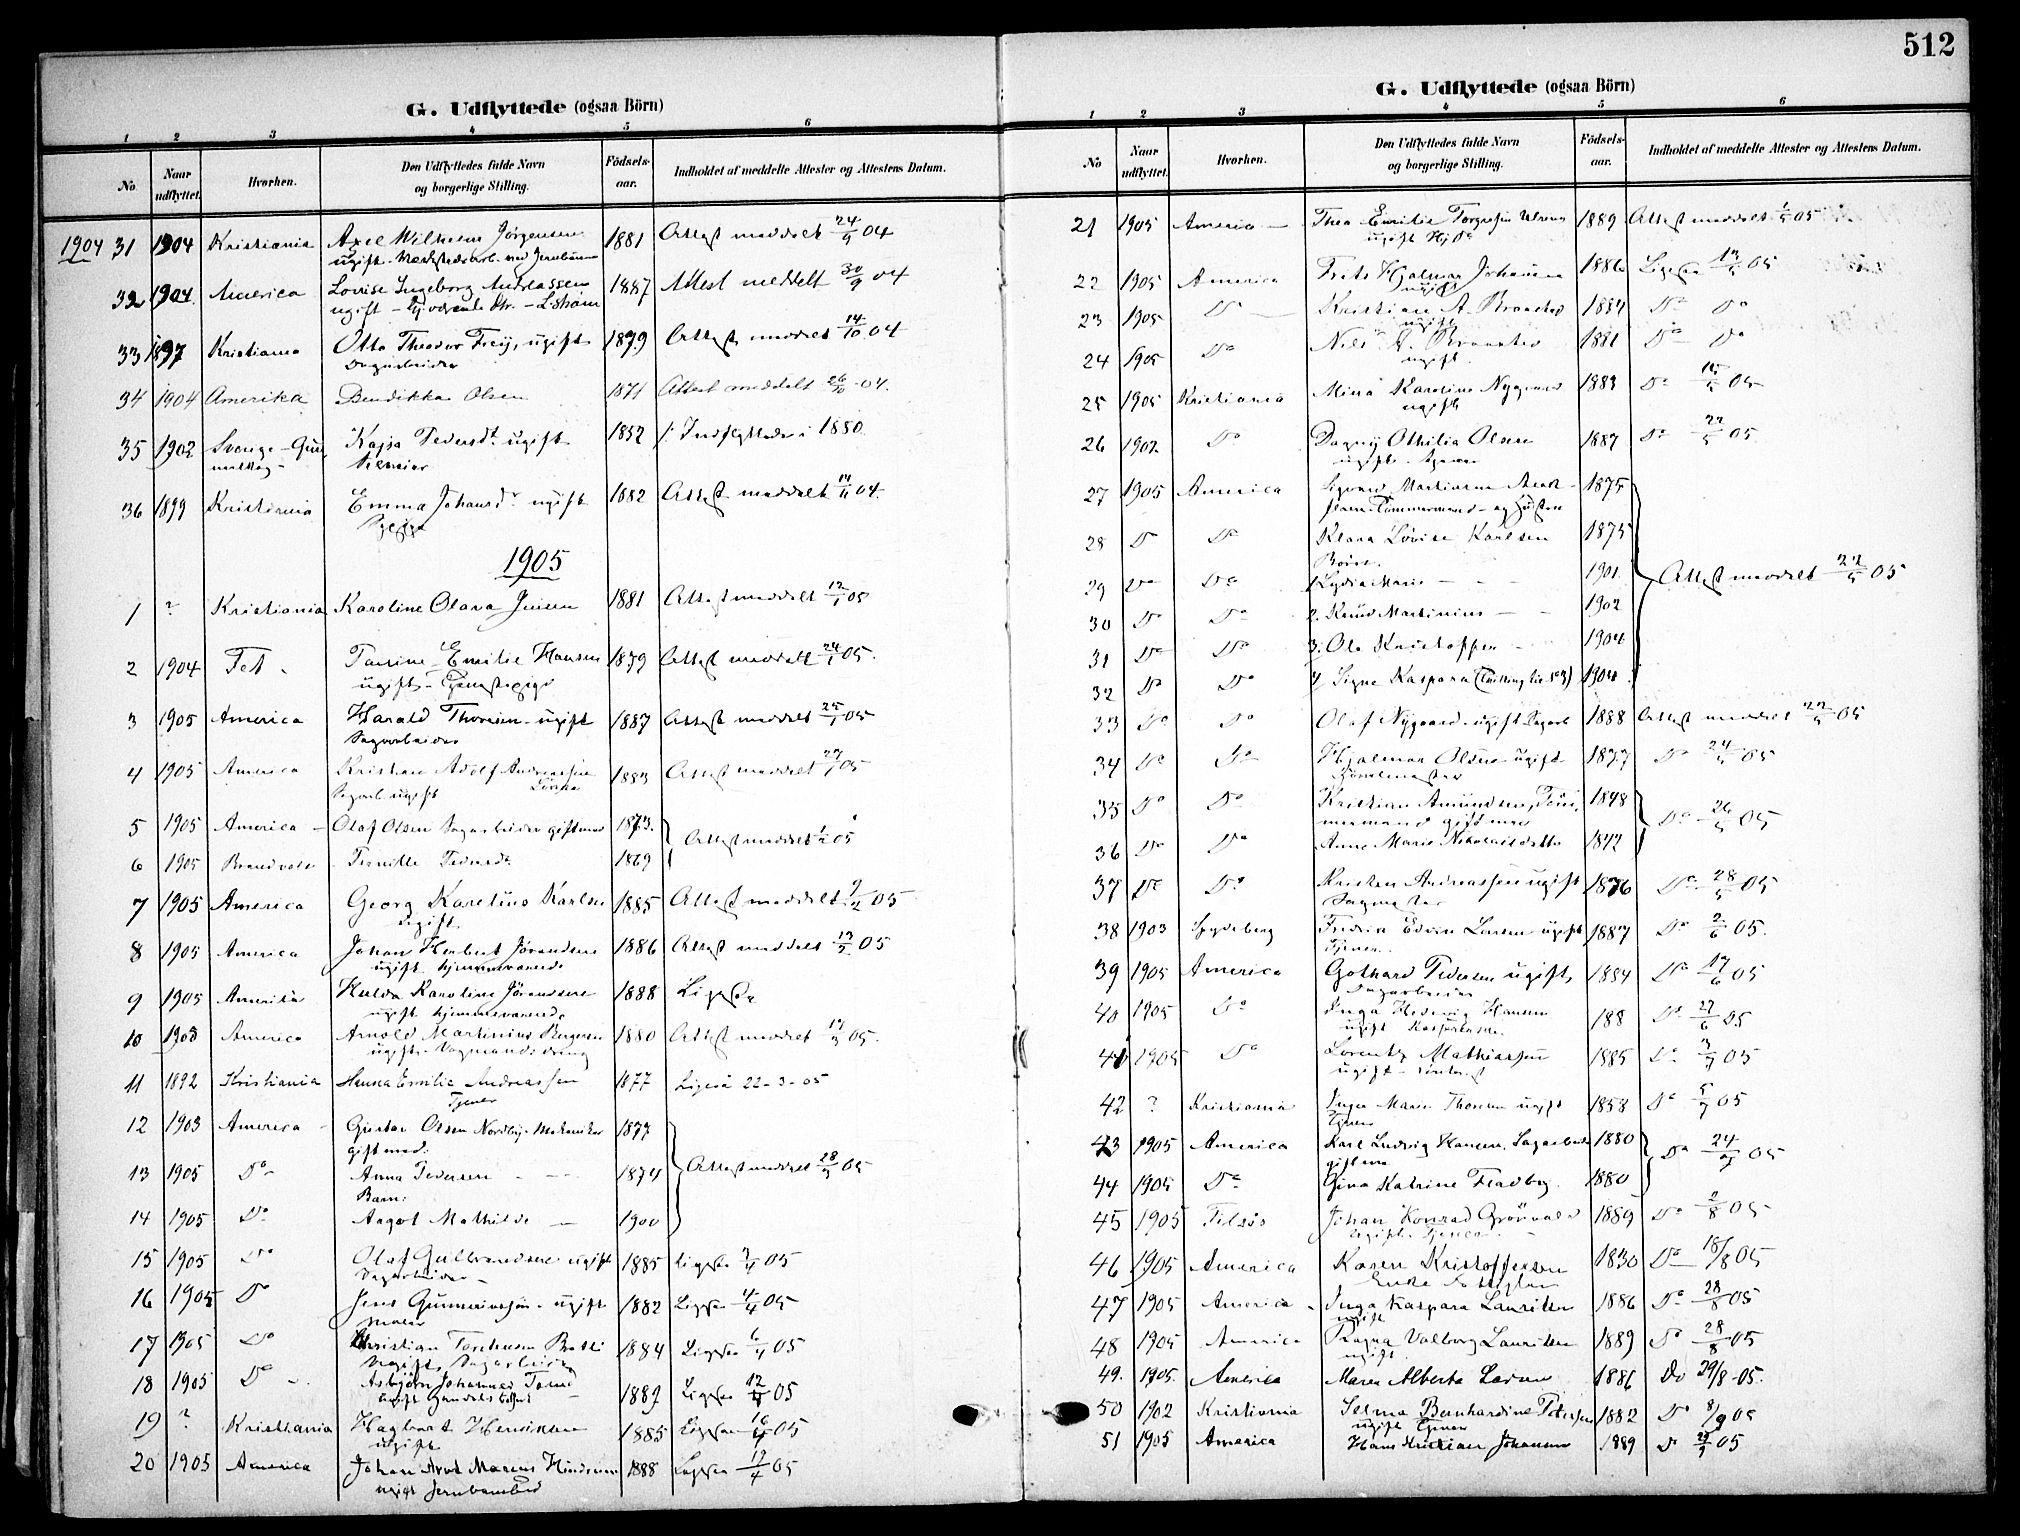 512
G. Udflyttede (ogsaa Börn)
1 2 3 4 5 6
No. Naar udflyttet. Hvorhen. Den Udflyttedes fulde Navn og borgerlige Stilling. Födsels-aar. Indholdet af meddelte Attester og Attestens Datum.
1904 31 1904 Kristiania Axel Wilhelm Jörgensen 1881 Attest meddelt 24/9 04
ugift
32 1904 America Lovise Ingeborg Andreassen 1887 Attest meddelt 30/9 04
ugift
33 1897 Kristiania Otto Theodor Frey, ugift 1879 Attest meddelt 14/10 04
34 1904 Amerika Bendikka Olsen 1871 Attest meddelt 26/10 04.
35 1902 Sverige Kajsa Pedersdt. ugift 1852 Indflyttede i 1880
36 1899 Kristiania Emma Johansdr ugift 1882 Attest meddelt 14/11 04.
1905
1 ? Kristiania Karoline Olava Jensen 1881 Attest meddelt 12/1 05
2 1904 Fet Emilie Hansen 1879 Attest meddelt 24/1 05.
ugift
3 1905 America Harald Thoresen ugift 1887 Attest meddelt 25/1 05
Sagarbeider
4 1905 America Kristian Adolf Andreassen 1883 Attest meddelt 27/1 05
Sagarb. ugift
5 1905 America Olaf Olsen Sagarbeider gift med 1873. Attest meddelt 05
6 1905 Brandvold Pernille Pedersdt 1869
7 1905 America Georg Karelius Karlsen 1885 Attest meddelt 9/2 05
ugift
8 1905 America Johan Herbert Jörandsen 1886 Attest meddelt 05
ugift hjemmeværende
9 1905 Amerika Hulda Karoline Jörandsen 1888 Ligesaa
ugift hjemmeværende
10 1903 America Arnold Martinius Bergersen 1880 Attest meddelt 17/3 05.
ugift
11 1892 Kristiania Hanna Emilie Andreassen 1877 Ligesaa 22-3-05
Tjener
12 1903 America Gustav Olsen Nordby, Mekaniker 1877
gift med.
13 1905 Do Anna Pedersen 1874 Attest meddelt 28/3 05
Barn:
14 1905 Do Aagot Mathilde 1900
15 1905 Do Olaf Gulbrandsen ugift 1885 Ligesaa 3/4 05
Sagarbeider
16 1905 Do Jens Gunnerius ugift 1882 Ligesaa 4/4 05
Maler
17 1905 Do Christian 1884 Ligesaa 6/4 05
Ugift Sagarbeider
18 1905 Do Asbjörn Johannes 1887 Ligesaa 12/4 05
ugift
19 ? Kristiania Hagbart Henriksen 1885 Ligesaa 16/4 05
ugift
20 1905 America Johan Marcus 1888 Ligesaa 17/4 05
ugift
G. Udflyttede (ogsaa Börn)
1 2 3 4 5 6
No Naar udflyttet. Hvorhen. Den Udflyttedes fulde Navn og borgerlige Stilling. Födsels-aar. Indholdet af meddelte Attester og Attestens Datum.
21 1905 America Thea Emilie Torgersen 1889 Attest meddelt 1/5 05
ugift
22 1905 America Frits Hjalmar Johansen 1886 Ligesaa 05
ugift
23 1905 Do Kristian A. 1884 Do Do
ugift
24 1905 Do Nils A. 1881 Do Do
ugift
25 1905 Kristiania Mina Karoline Nygaard 1883 Do 15/5 05
ugift
26 1902 Do Dagny Othilia Olsen 1887 Do 22/5 05.
ugift
27 1905 America Martinius 1875
Tömmermand og Hustru
28 Do Do Klara Lovise Karlsen 1875
Börn.
29 Do Do 1 Lydia Marie 1901 Attest meddelt 22/5 05
30 Do Do 2. Knud Martinius 1902
31 Do Do 3. Ole Kristoffer 1904
32 Do Do 4 Signe Kaspara (Tvilling til No 3) 1904
33 Do Do Olaf Nygaard ugift Sagarb 1888 Attest meddelt 22/5 05
34 Do Do Hjalmar Olsen ugift 1877 Do 24/5 05
35 Do Do Kristian Amundsen, Töm- 1848
mermand gift med Do 26/5 05
36 Do Do Anne Marie Nikolaisdatter 1842
37 Do Do Kristen Andreassen ugift 1876 Do 28/5 05
38 1903 Spydeberg Edvin Larsen ugift 1887 Do 2/6 05.
Tjener
39 1905 America Gothard Pedersen ugift 1884 Do 17/6 05
40 1905 Do Inga Hedevig Hansen 188 Do 27/6 05
ugift
41 1905 Do Lorentz Mathiassen 1885 Do 3/7 05
ugift
42 ? Kristiania Inga Marie Thoresen ugift 1858 Do 5/7 05
Tjener
43 1905 America Karl Ludvig Hansen, Sagarbeider 1880 Do 24/7 05
gift med
44 1905 Do Gina Katrine 1880
45 1905 Johan Konrad Grönvold 1889 Do 2/8 05
ugift Tjener
46 1905 America Karen Kristoffersen 1830 Do 18/8 05
Enke
47 1905 America Inga Kaspara Lauritsen 1886 Do 28/8 05
ugift
48 1905 America Ragna Valborg Lauritsen 1889 Do 28/8 05
ugift
49. 1905 America Maren Alberta Larsen 1886 Do 29/8-05.
50 1902 Kristiania Selma Bernhardine Petersen 1882 Do 8/9 05
ugift Tjener
51 1905 America Hans Kristian Johansen 1889 Do 05